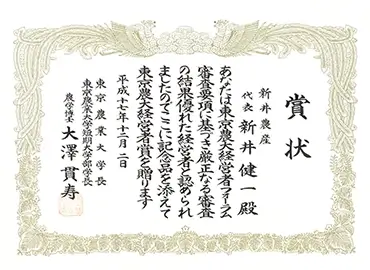 賞状
新井農産
代表 新井健一殿
あなたは東京農大経営者フォーラム
審査要項に基づき厳正なる審査
の結果優れた経営者と認められ
ましたのでここに記念品を添えて
東京農大経営者賞を贈ります
平成十七年十二月二日
東京農業大学長
東京農業大学短期大学部学長
農学博士 大澤貫寿